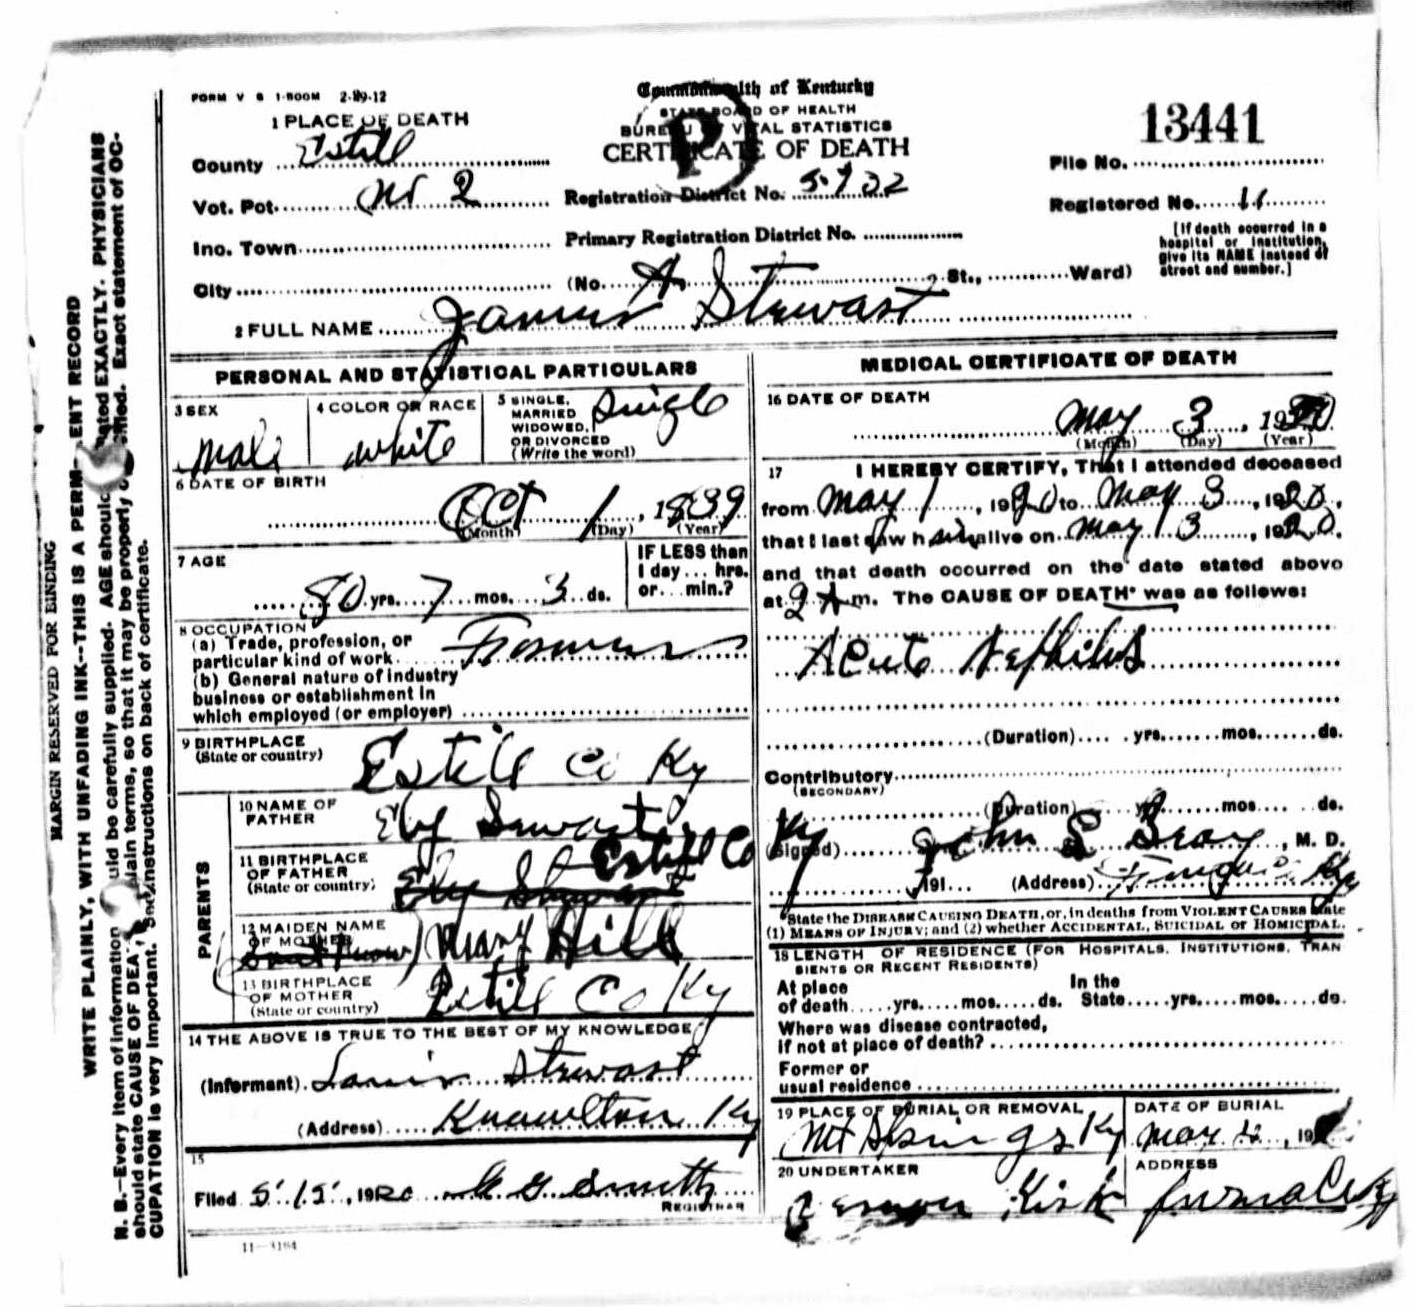 FORM V S 1-500M 2-29-12
Commonwealth of Kentucky
STATE BOARD OF HEALTH
BUREAU OF VITAL STATISTICS
CERTIFICATE OF DEATH
P
13441
File No.
Registered No. 11
[If death occurred in a
hospital or institution,
give its NAME instead of
street and number.]
1 PLACE OF DEATH
County Estill
Vot. Pot. No 2
Registration District No. 5722
Inc. Town
Primary Registration District No.
City (No. St., Ward)
2 FULL NAME James A Stewart
PERSONAL AND STATISTICAL PARTICULARS
3 SEX
Male
4 COLOR OR RACE
White
5 SINGLE,
MARRIED
WIDOWED,
OR DIVORCED
(Write the word)
Single
6 DATE OF BIRTH
Oct 1, 1839
(Month) (Day) (Year)
7 AGE
80 yrs. 7 mos. 3 ds.
IF LESS than
1 day ... hrs.
or ... min.?
8 OCCUPATION
(a) Trade, profession, or
particular kind of work Farmer
(b) General nature of industry
business or establishment in
which employed (or employer)
9 BIRTHPLACE
(State or country)
Estill Co Ky
PARENTS
10 NAME OF
FATHER
Eby Stewart
11 BIRTHPLACE
OF FATHER
(State or country)
Estill Co Ky
12 MAIDEN NAME
OF MOTHER
Mary Hill
13 BIRTHPLACE
OF MOTHER
(State or country)
Estill Co Ky
14 THE ABOVE IS TRUE TO THE BEST OF MY KNOWLEDGE
(Informant) Stewart
(Address) Knowlton Ky
15
Filed 5/15, 1920 Smith
REGISTRAR
11-3184
MEDICAL CERTIFICATE OF DEATH
16 DATE OF DEATH
May 3, 1920
(Month) (Day) (Year)
17 I HEREBY CERTIFY, That I attended deceased
from May 1, 1920 to May 3, 1920,
that I last saw him alive on May 3, 1920.
and that death occurred on the date stated above
at 2 A m. The CAUSE OF DEATH* was as follows:
Acute Nephitis
(Duration) yrs. mos. ds.
Contributory
(SECONDARY)
(Duration) yrs. mos. ds.
(Signed) John S Gray, M. D.
191 (Address) Ky
*State the DISEASE CAUSING DEATH, or, in deaths from VIOLENT CAUSES state
(1) MEANS OF INJURY; and (2) whether ACCIDENTAL, SUICIDAL or HOMICIDAL.
18 LENGTH OF RESIDENCE (FOR HOSPITALS, INSTITUTIONS, TRAN
SIENTS OR RECENT RESIDENTS)
At place of death yrs. mos. ds. In the State yrs. mos. ds.
Where was disease contracted,
if not at place of death?
Former or
usual residence
19 PLACE OF BURIAL OR REMOVAL
Mt Springs Ky
DATE OF BURIAL
May 4, 19
20 UNDERTAKER
Kirk
ADDRESS
Furnace Ky
MARGIN RESERVED FOR BINDING
WRITE PLAINLY, WITH UNFADING INK--THIS IS A PERM ENT RECORD
N. B.--Every item of information should be carefully supplied. AGE should stated EXACTLY. PHYSICIANS
should state CAUSE OF DEATH plain terms, so that it may be properly classified. Exact statement of OC-
CUPATION is very important. See instructions on back of certificate.